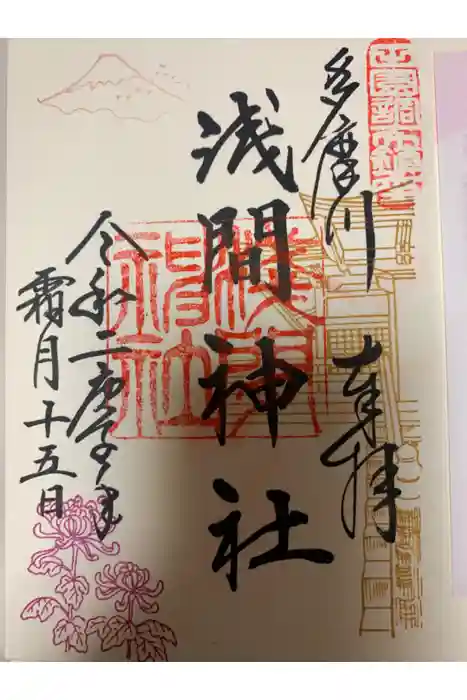 多摩川 奉拝
浅間神社
令和二庚子年
霜月十五日
淺間
神社